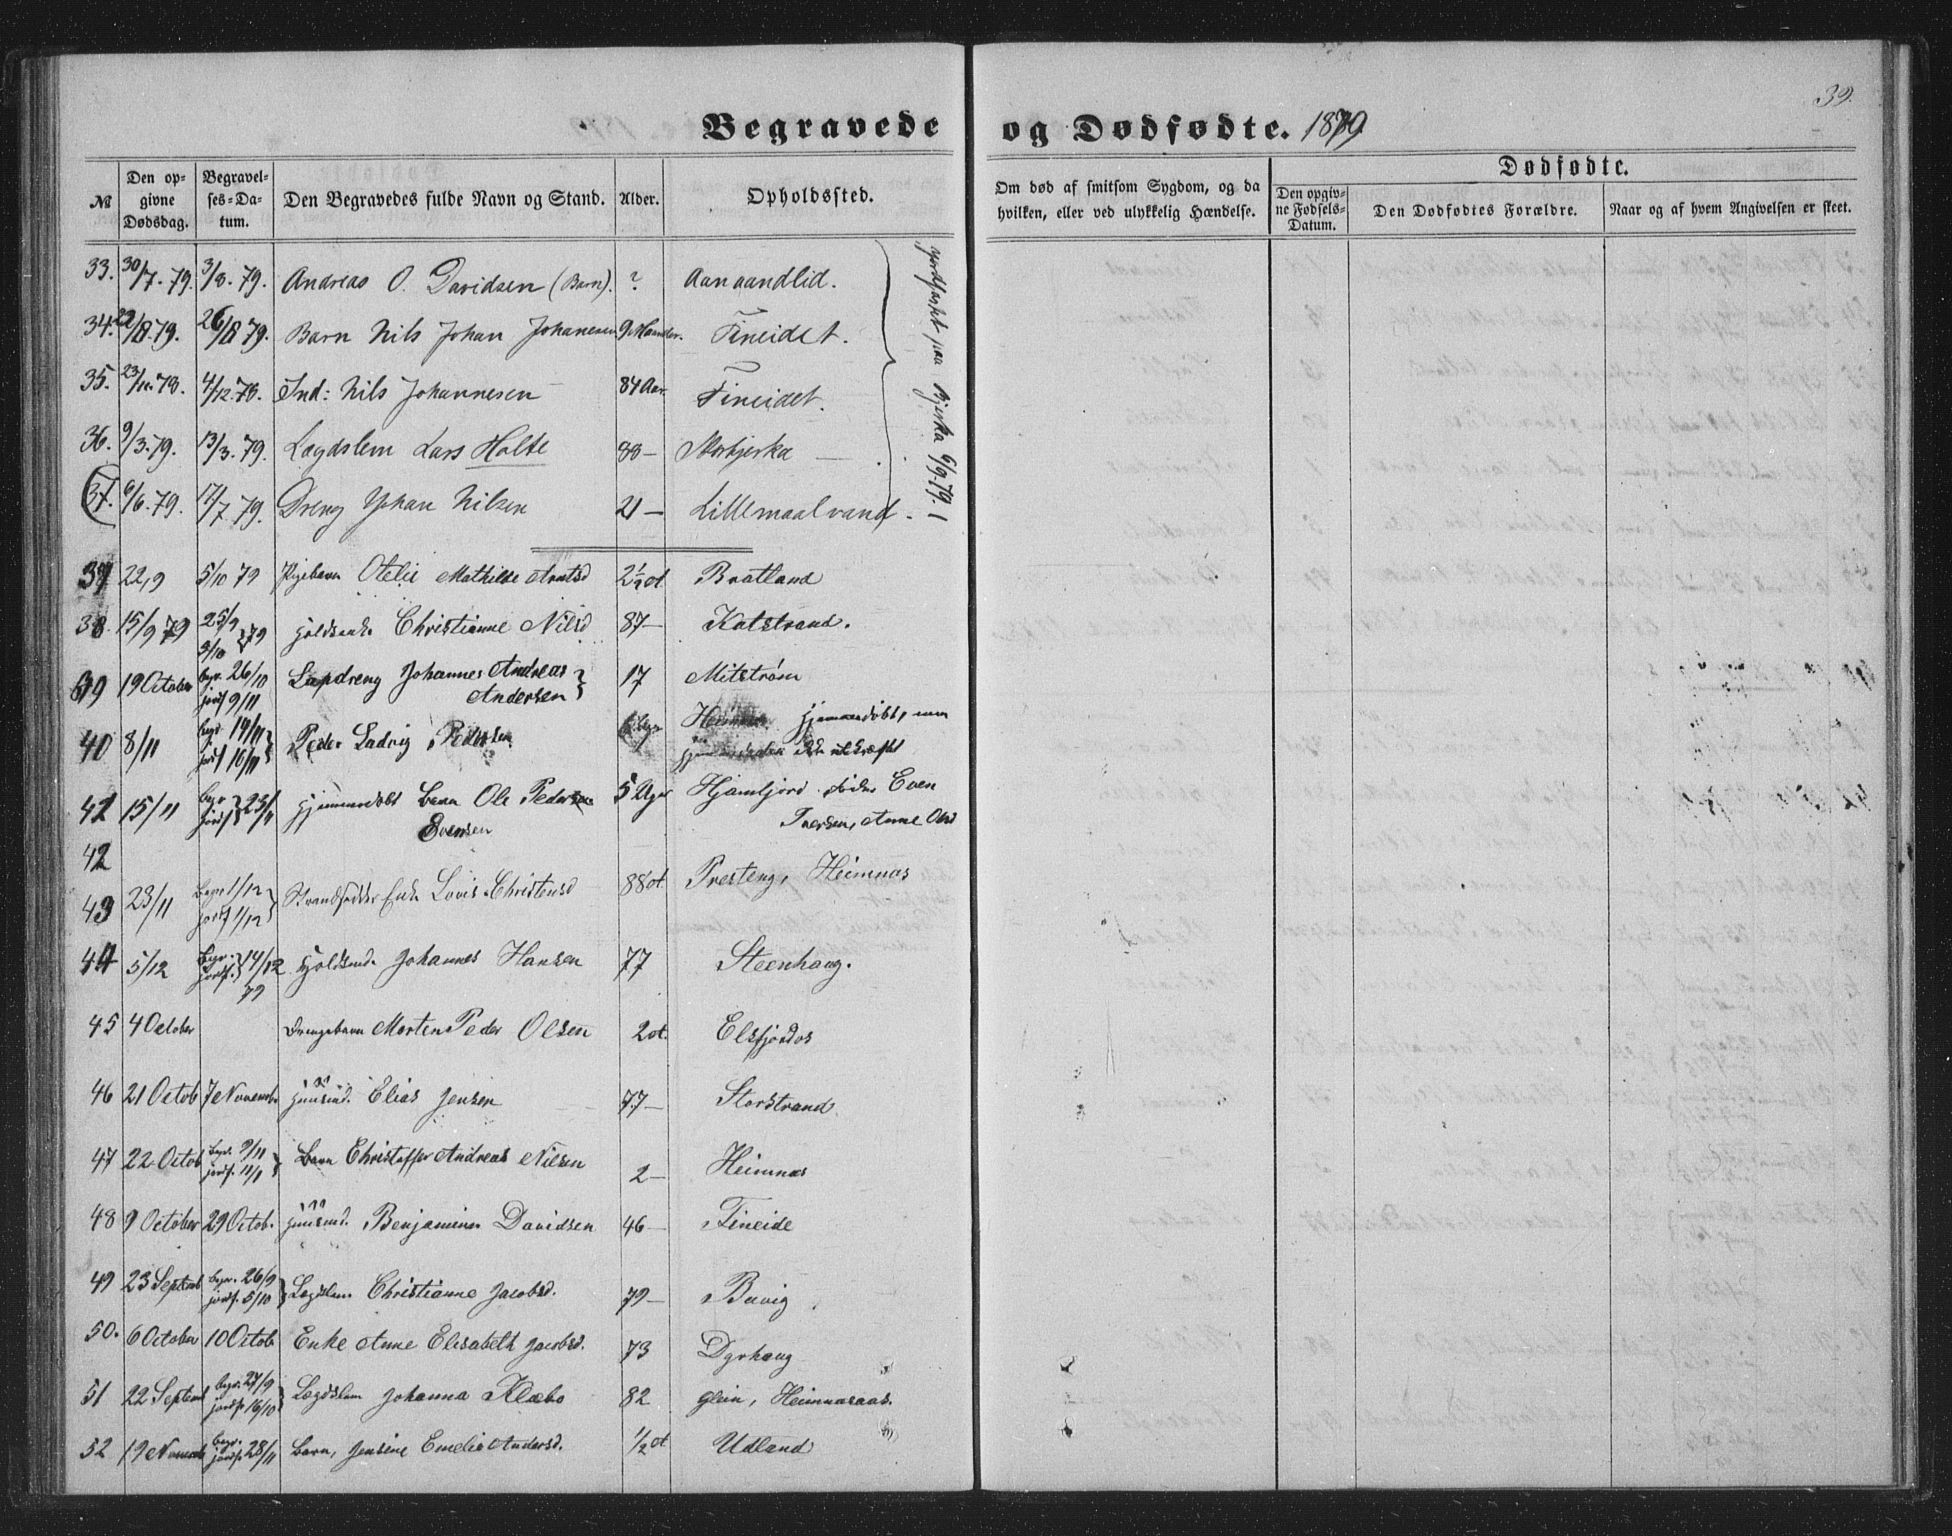 39.
Begravede og Dødfødte. 1879
№ Den opgivne Dødsdag. Begravelses-Datum. Den Begravedes fulde Navn og Stand. Alder. Opholdssted. Om død af smitsom Sygdom, og da hvilken, eller ved ulykkelig Hændelse. Dødfødte. Den opgivne Fødsels-Datum. Den Dødfødtes Forældre. Naar og af hvem Angivelsen er skeet.
33. 30/7. 79. 3/8. 79. Andreas O. Davidsen (Barn). ? Aanaandlid.
34. 22/8. 79. 26/8 79. Barn Nils Johan Johanesen 9 Maaneder. Fineidet.
35. 23/11. 78. 4/12. 78. Ind: Nils Johannesen 84 Aar. Fineidet.
36. 9/3. 79. 13/3. 79. Lægdslem Lars Holte 88 — Storbjerka —
37. 6/6. 79. 17/7 79. Dreng Johan Nilsen 21 — Lillemaalvand.
jordfæstet paa Bjerka 6/9. 79.
37 22/9 5/10 79 Pigebarn Otelie Mathilde Arntsd 2½ Bratland
38. 15/9 79 25/9 5/10 } 79 Christianne Nilsd 87 — Katstrand.
39 19 October begr. 26/10 Lapdreng Johannes Andreas } 17 Mitstrøm
jordf 9/11 Andersen
40 8/11 begr 19/11 Peder Ludvig Pedersen. hjemmedøbt, men
jordf 16/11 ikke
41 15/11 begr jordf } 23/11 hjemmedøbt Barn Ole Pedersen 5 Uger Even
Evensen Iversen, Anne Olsd
42
43 23/11 begr 1/12 jordf 1/12 } Enke Lovis Christensd 88 Presteng, Heimnæs
44 5/12 begr. jordf. } 14/12 79 Johannes Hansen 77 Steenhaug.
45 4 October Drengebarn Morten Peder Olsen 2 Elsfjordos
46 21 Octob 7 Novembr Elias Jensen 77 — Storstrand
47 22 Octob begr. 9/11 jordf. 11/11 } Barn Christoffer Andreas Nilsen 2 — Heimnæs
48 9 October 29 Octob. Benjamin Davidsen 46 — Fineide
49 23 Septemb begr. 26/9 jordf. 5/10 } Lægdslem Christianne Jacobsd. 79 — Buvig
50. 6 October 10 Octob Enke Anne Elisabeth Jacobsd. 73 Dyrhaug
51 22 Septemb begr. 27/9 jordf. 16/10 } Lægdslem Johanna Klæbo 82 Glein, Heimnæsaas.
52 19 Novemb begr. jordf. 28/11 Barn, Jensine Emelie Andersd. ½ Utland